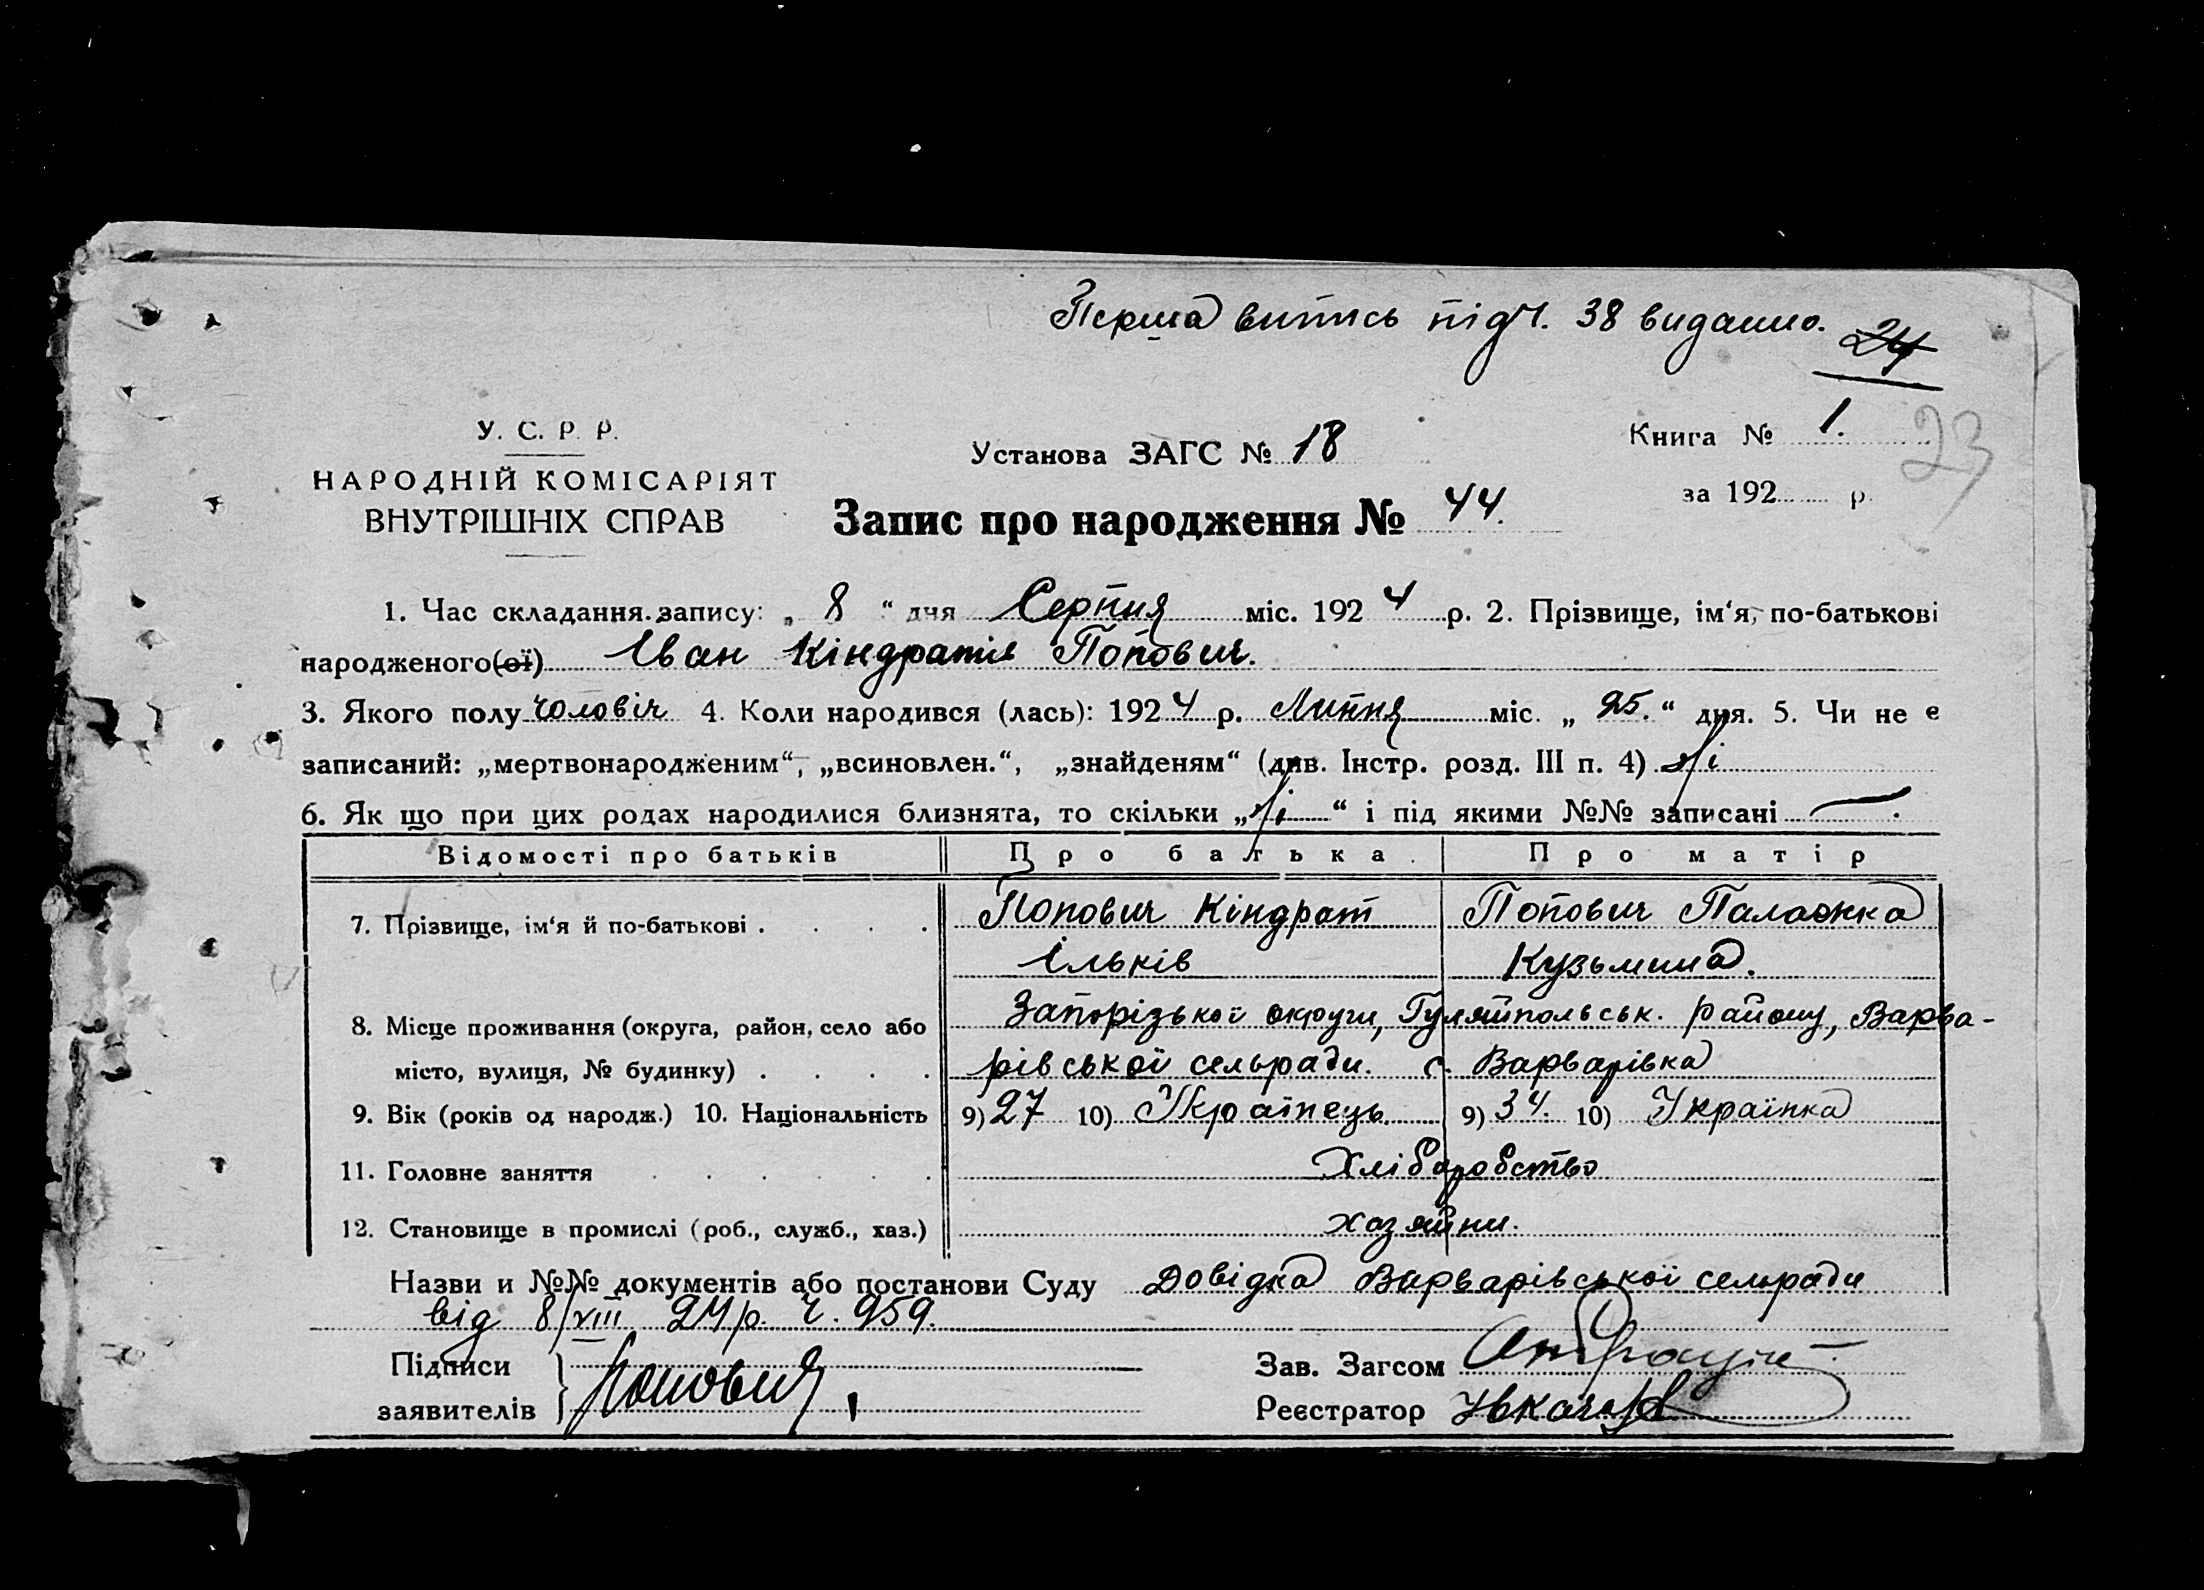 Перша випись під ч. 38 видано.
24
23
У. С. Р. Р.
НАРОДНІЙ КОМІСАРІЯТ
ВНУТРІШНІХ СПРАВ
Установа ЗАГС № 18
Книга № 1.
за 192 р.
Запис про народження № 44.
1. Час складання запису: „ 8 “ дня Серпня міс. 192 4 р. 2. Прізвище, ім‘я, по-батькові
народженого(ої) Іван Кіндратів Попович.
3. Якого полу чоловіч 4. Коли народився (лась): 192 4 р. Липня міс. „ 25. “ дня. 5. Чи не є
записаний: „мертвонародженим“, „всиновлен.“, „знайденям“ (див. Інстр. розд. III п. 4) Ні
6. Як що при цих родах народилися близнята, то скільки „ Ні “ і під якими №№ записані —.
Відомості про батьків Про батька. Про матір
7. Прізвище, ім‘я й по-батькові . . . . Попович Кіндрат Попович Палажка
Ільків Кузьмина.
8. Місце проживання (округа, район, село або Запорізької округи, Гуляйпольськ. району, Варва-
місто, вулиця, № будинку) . . . . рівської сельради. с. Варварівка
9. Вік (років од народж.) 10. Національність 9) 27 10) Українець 9) 34. 10) Українка
11. Головне заняття . . . . . . Хліборобство
12. Становище в промислі (роб., служб., хаз.) хазяїни.
Назви и №№ документів або постанови Суду Довідка Варварівської сельради
від 8/VIII 24 р. ч. 959.
Підписи
заявителів Попович
Зав. Загсом
Реєстратор